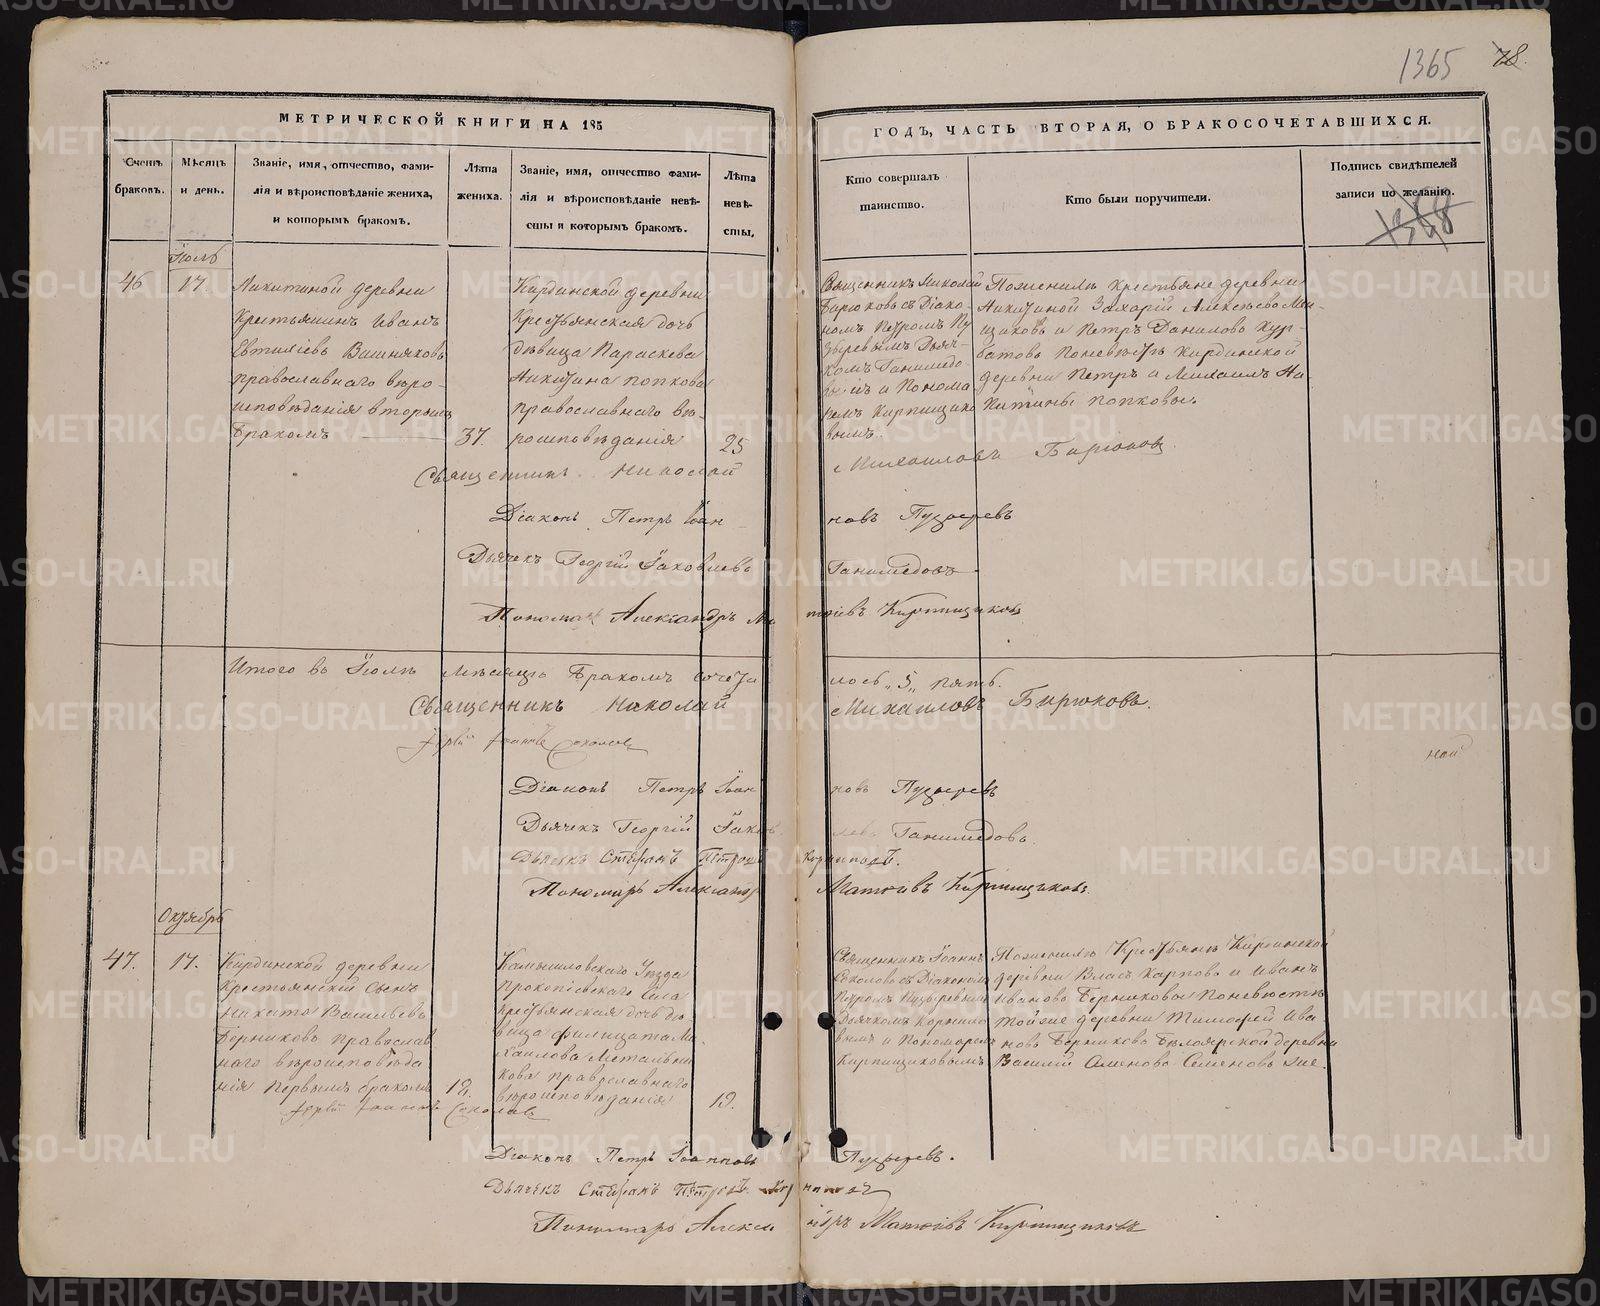 1365 78
МЕТРИЧЕСКОЙ КНИГИ НА 185
ГОДЪ, ЧАСТЬ ВТОРАЯ, О БРАКОСОЧЕТАВШИХСЯ.
Счетъ браковъ.
Мѣсяцъ и день.
Званіе, имя, отчество, фами-
лія и вѣроисповѣданіе жениха,
и которымъ бракомъ.
Лѣта
жениха.
Званіе, имя, отчество фами-
лія и вѣроисповѣданіе невѣ-
сты и которымъ бракомъ.
Лѣта
невѣ-
сты.
Кто совершалъ
таинство.
Кто были поручители.
Подпись свидѣтелей
записи по желанію.
1368
Іюль
46
17.
Никитиной деревни
Крестьянинъ Иванъ
Евтихіевъ Вишняковъ
православнаго вѣро-
исповѣданія вторымъ
бракомъ
37.
Кирдинской деревни
Крестьянская дочь
дѣвица Параскева
Никитина Попкова
православнаго вѣ-
роисповѣданія
25
Священникъ Николай
Бирюковъ съ Діако-
номъ Петромъ Пу
зыревымъ Дьяч-
комъ Ганимедо-
вымъ и Понома
ремъ Кирпищико
вымъ.
По женихѣ крестьяне деревни
Никитиной Захарій Алексѣевъ
и Петръ Даниловъ Кур-
батовъ по невѣстѣ Кирдинской
деревни Петръ и Михаилъ Ни-
китины Попковы.
Священникъ Николай Михайловъ Бирюковъ
Діаконъ Петръ Іоанновъ Пузыревъ
Дьячекъ Георгій Іаковлевъ Ганимедовъ
Пономарь Александръ Матѳіевъ Кирпищиковъ
Итого въ Іюлѣ мѣсяцѣ бракомъ сочеталось „5„ пять.
Священникъ Николай Михайловъ Бирюковъ.
Іоаннъ Соколовъ
Діаконъ Петръ Іоанновъ Пузыревъ
Дьячекъ Георгій Іаковлевъ Ганимедовъ
Дьячекъ Стефанъ Петровъ Корниловъ.
Пономарь Александръ Матѳіевъ Кирпищиковъ.
Октябрь
47.
17.
Кирдинской деревни
Крестьянскій Сынъ
Никита Васильевъ
Берниковъ православ
наго вѣроисповѣда
нія первымъ бракомъ
18.
Камышловскаго Уѣзда
Прокопіевскаго Села
крестьянская дочь дѣ
вица Филицата Ми
хаилова Метальни
кова православнаго
вѣроисповѣданія
19.
Священникъ Іоаннъ
Соколовъ съ Діакономъ
Петромъ Пузыревымъ
Дьячкомъ Корнило
вымъ и Пономаремъ
Кирпищиковымъ
По женихѣ Крестьяне Кирдинской
деревни Власъ Карповъ и Иванъ
Ивановъ Берниковы по невѣстѣ
той же деревни Тимофей Ива
новъ Берниковъ Белоярской деревни
Василій Семеновъ
Іоаннъ Соколовъ
Діаконъ Петръ Іоанновъ Пузыревъ.
Дьячекъ Стефанъ Петровъ Корниловъ
Пономарь Александръ Матѳіевъ Кирпищиковъ
METRIKI.GASO-URAL.RU